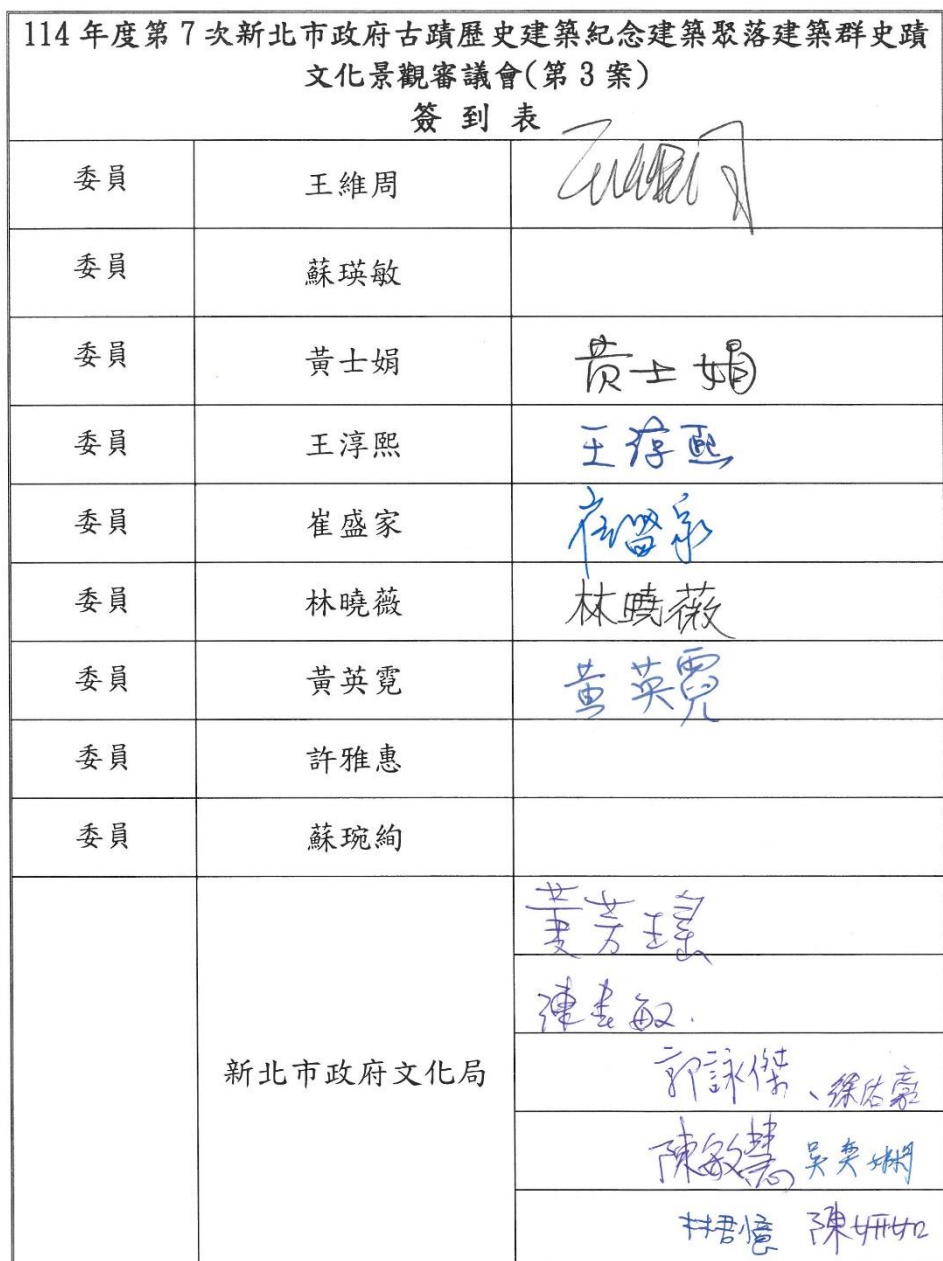 114 年度第 7 次新北市政府古蹟歷史建築紀念建築聚落建築群史蹟
文化景觀審議會(第 3 案)
簽 到 表
委員 王維周
委員 蘇瑛敏
委員 黃士娟 黃士娟
委員 王淳熙 王淳熙
委員 崔盛家 崔盛家
委員 林曉薇 林曉薇
委員 黃英霓 黃英霓
委員 許雅惠
委員 蘇琬絢
陳敏慧
郭詠傑、徐佑豪
新北市政府文化局
林君憶 陳妍如